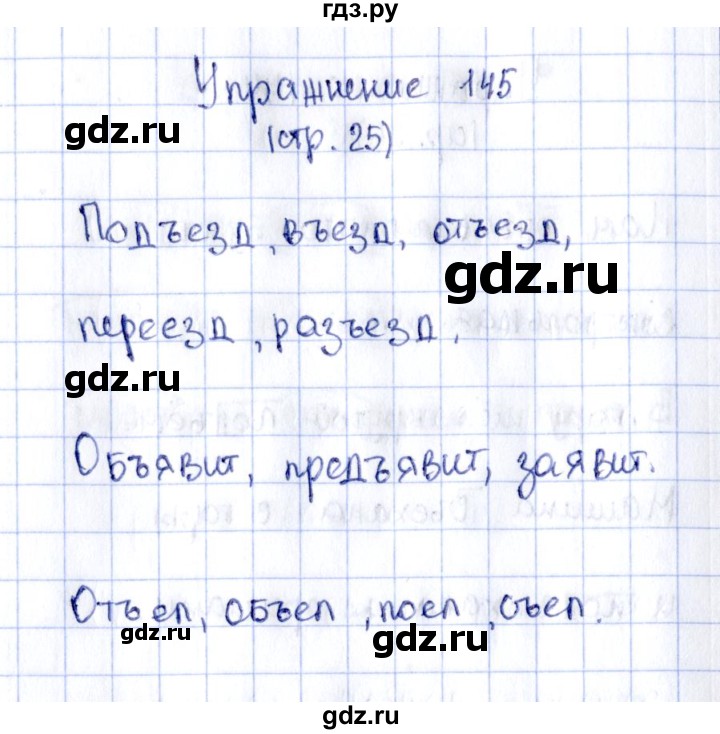 гдз.ру
Упражнение 145
gdz.ru
(стр. 25)
Подъезд, въезд, отъезд,
gdz.ru
переезд, разъезд.
gdz.ru
Объявит, предъявит, заявит.
Отъел, объел, поел, съел.
gdz.ru
gdz.ru
gdz.ru